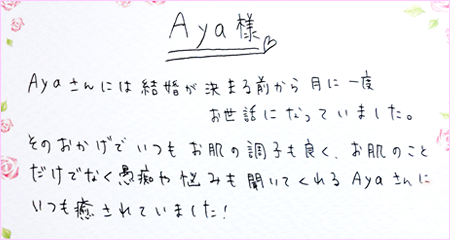 Aya様
Ayaさんには結婚が決まる前から月に一度
お世話になっていました。
そのおかげでいつもお肌の調子も良く、お肌のこと
だけでなく愚痴や悩みも聞いてくれるAyaさんに
いつも癒されていました!